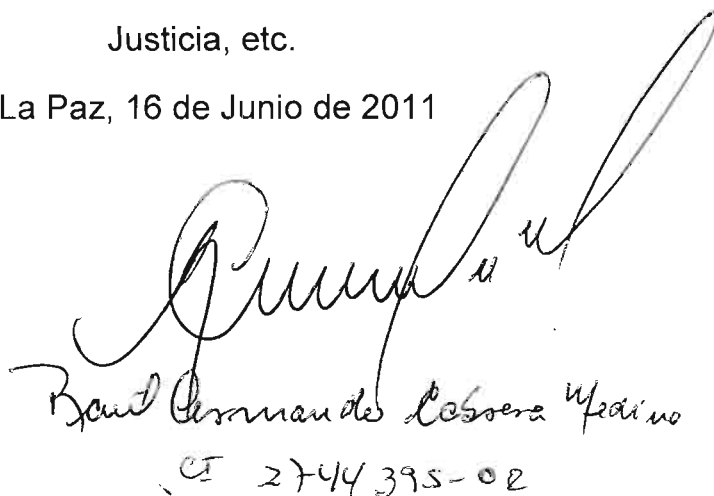 Justicia, etc.
La Paz, 16 de Junio de 2011
Raul Cabrera Medina
CI 2744395-OR